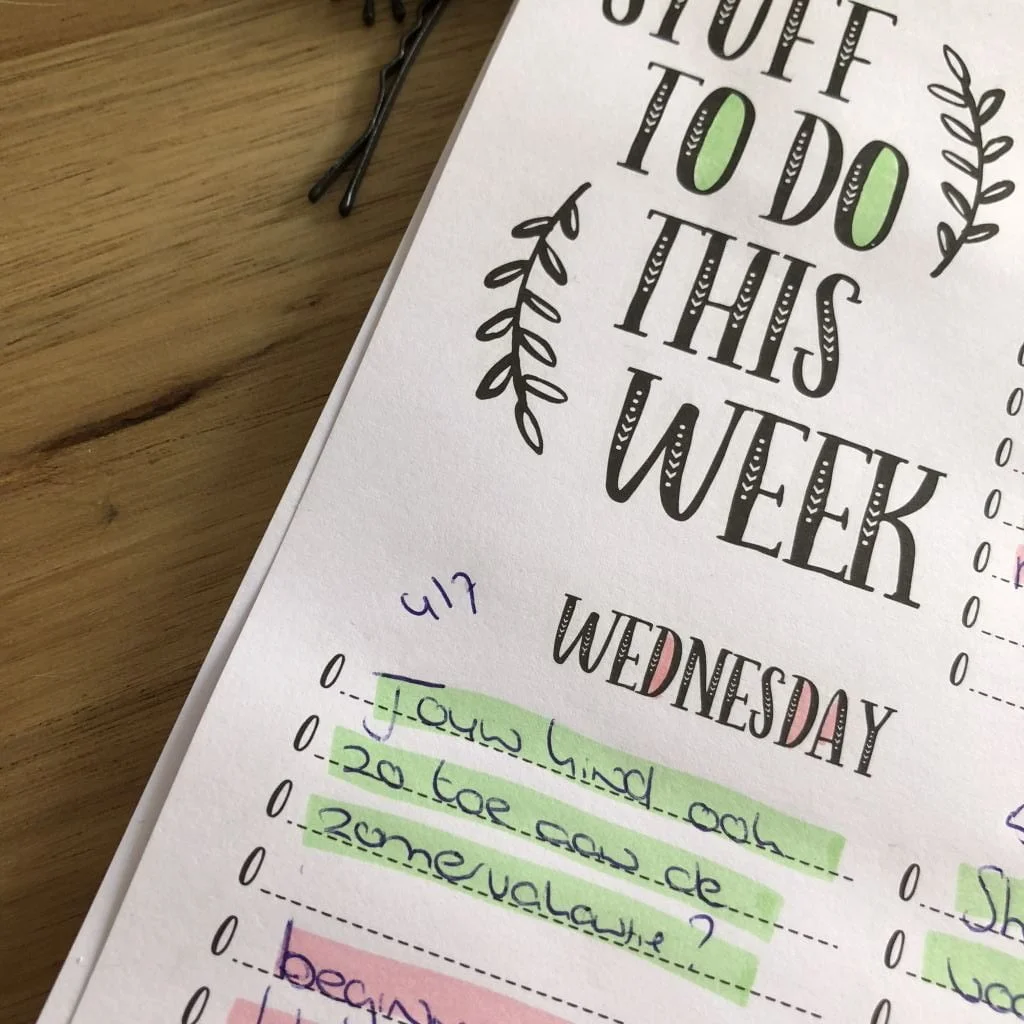 STUFF
TO DO
THIS
WEEK
4/7
WEDNESDAY
Jouw kind ook
zo toe aan de
zomervakantie?
begin
Sh